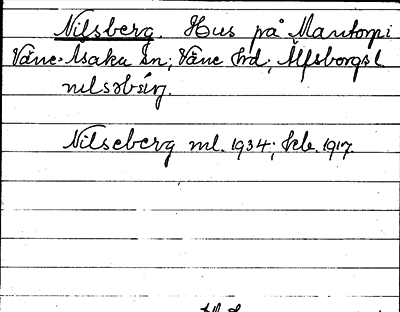 Nilsberg. Hus på Mantorp i
Väne-Åsaka Sn; Väne Hrd; Älfsborgs l
Nilseberg ml. 1934; kb. 1917.